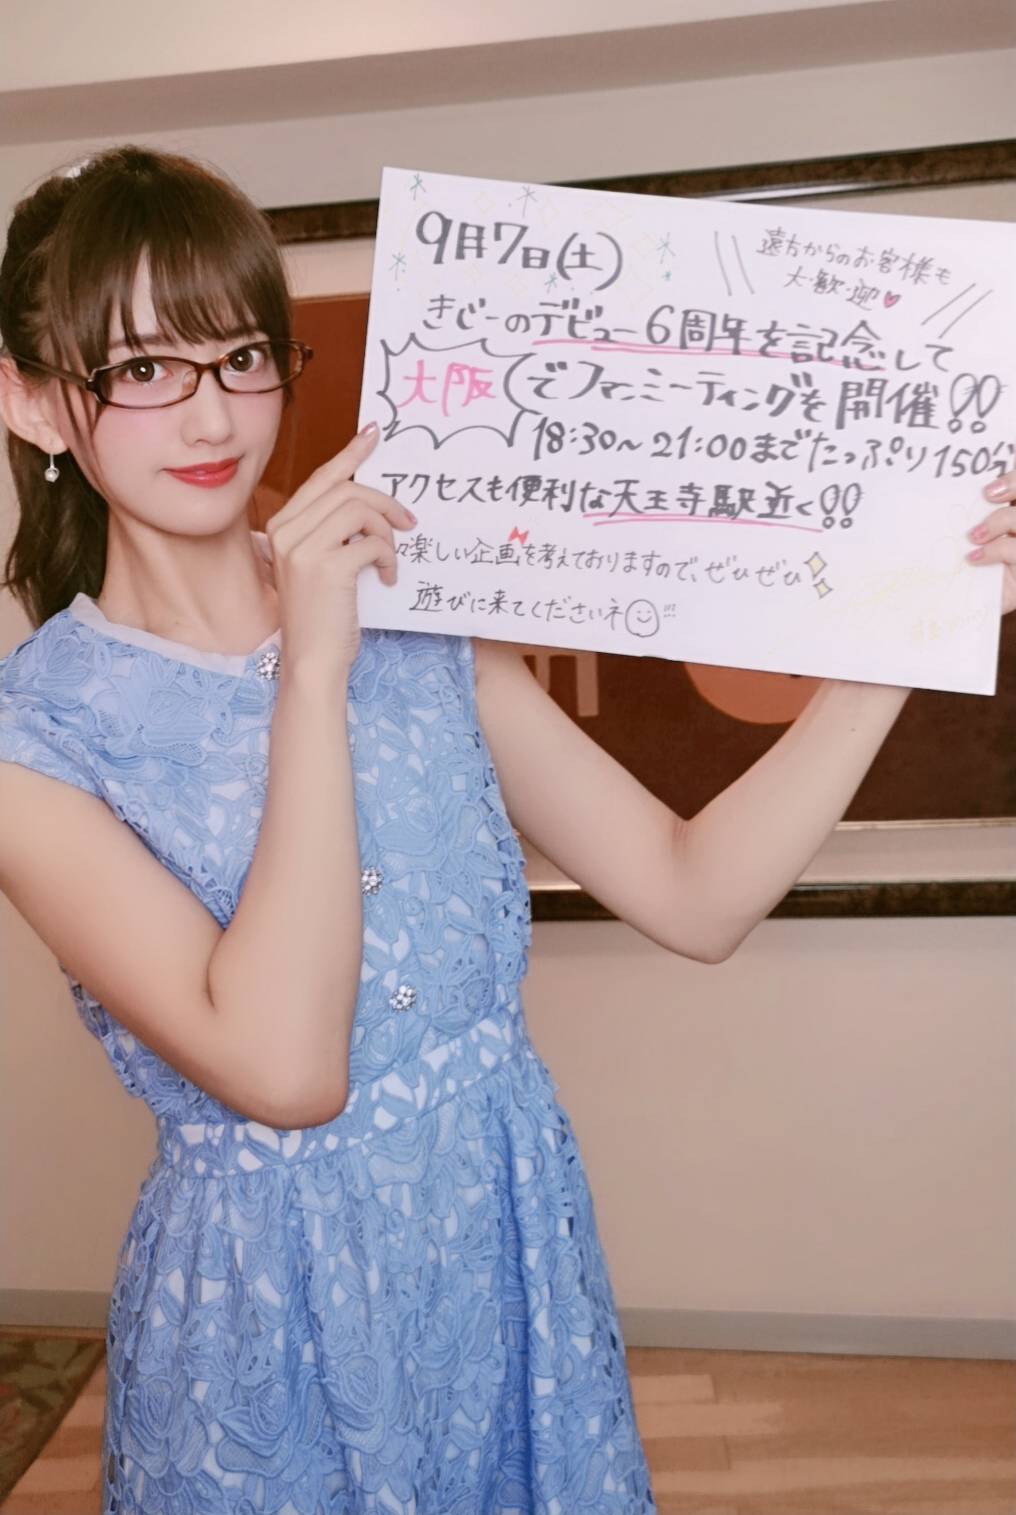 9月7日(土)
遠方からのお客様も
大・歓・迎
きじーのデビュー6周年を記念して
大阪でファンミーティングを開催!!
18:30～21:00までたっぷり150分
アクセスも便利な天王寺駅近く!!
々楽しい企画を考えておりますので、ぜひぜひ
遊びに来てくださいネ!!!